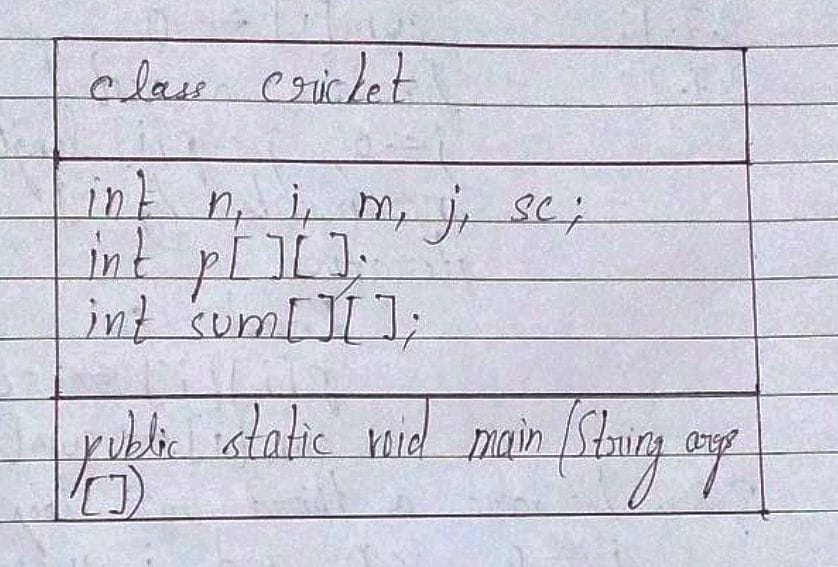 class cricket
int n, i, m, j, sc;
int p[][];
int sum[][];
public static void main (String args
[])